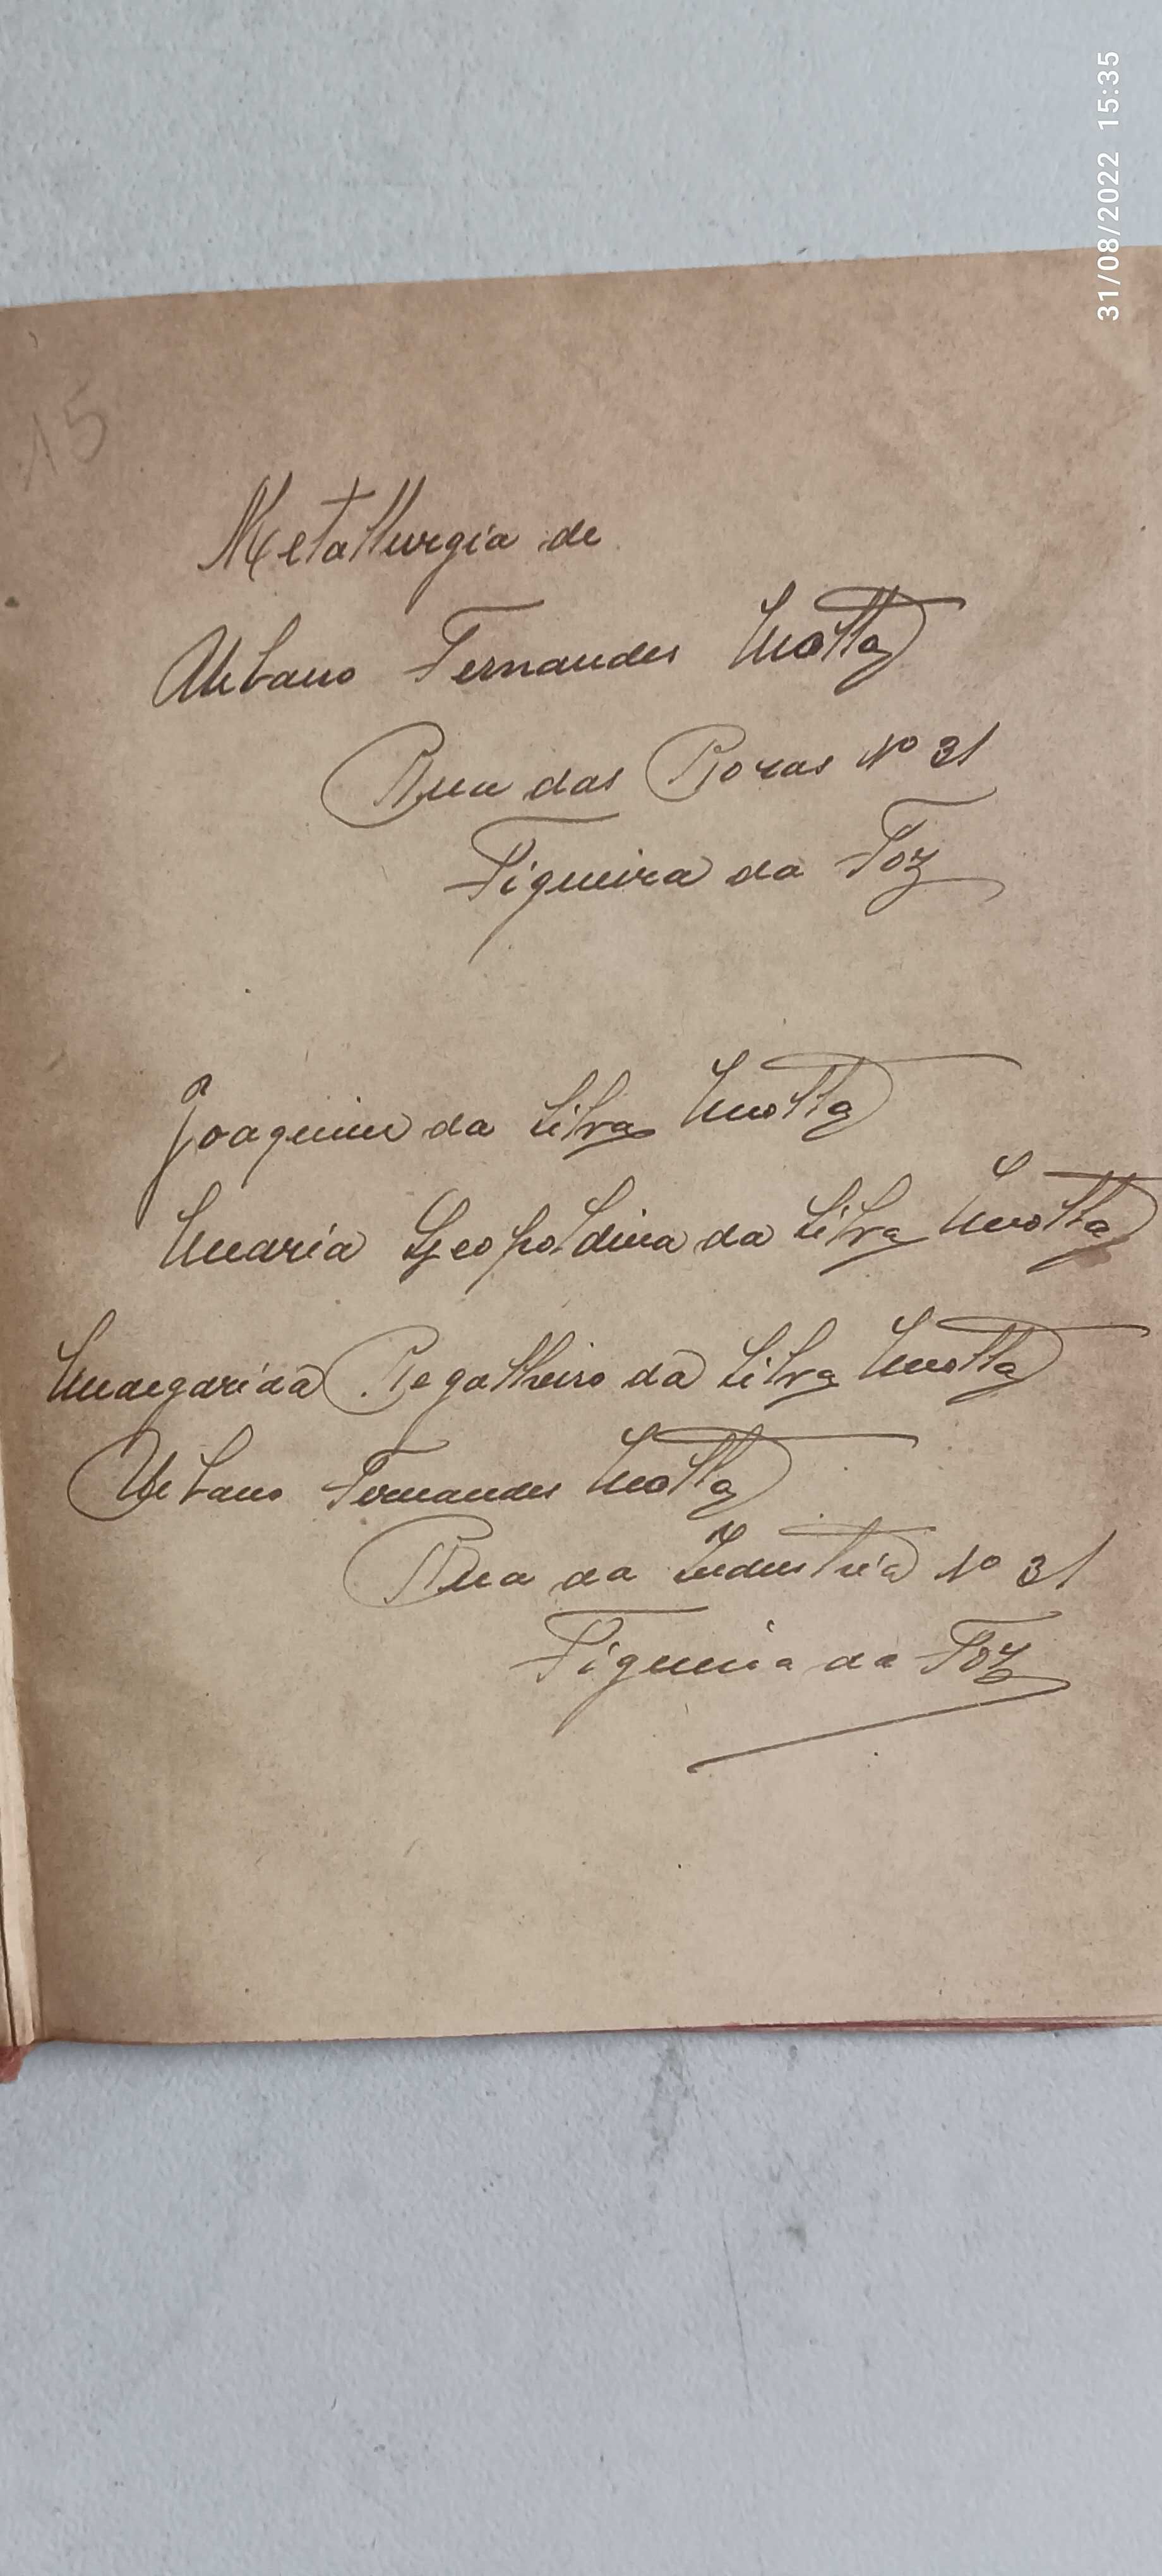 31/08/2022 15:35
15
Metallurgia de
Urbano Fernandes Motta
Rua das Rozas Nº 31
Figueira da Foz
Joaquim da Silva Motta
Maria Leopoldina da Silva Motta
Margarida Regalheiro da Silva Motta
Urbano Fernandes Motta
Rua da Industria Nº 31
Figueira da Foz